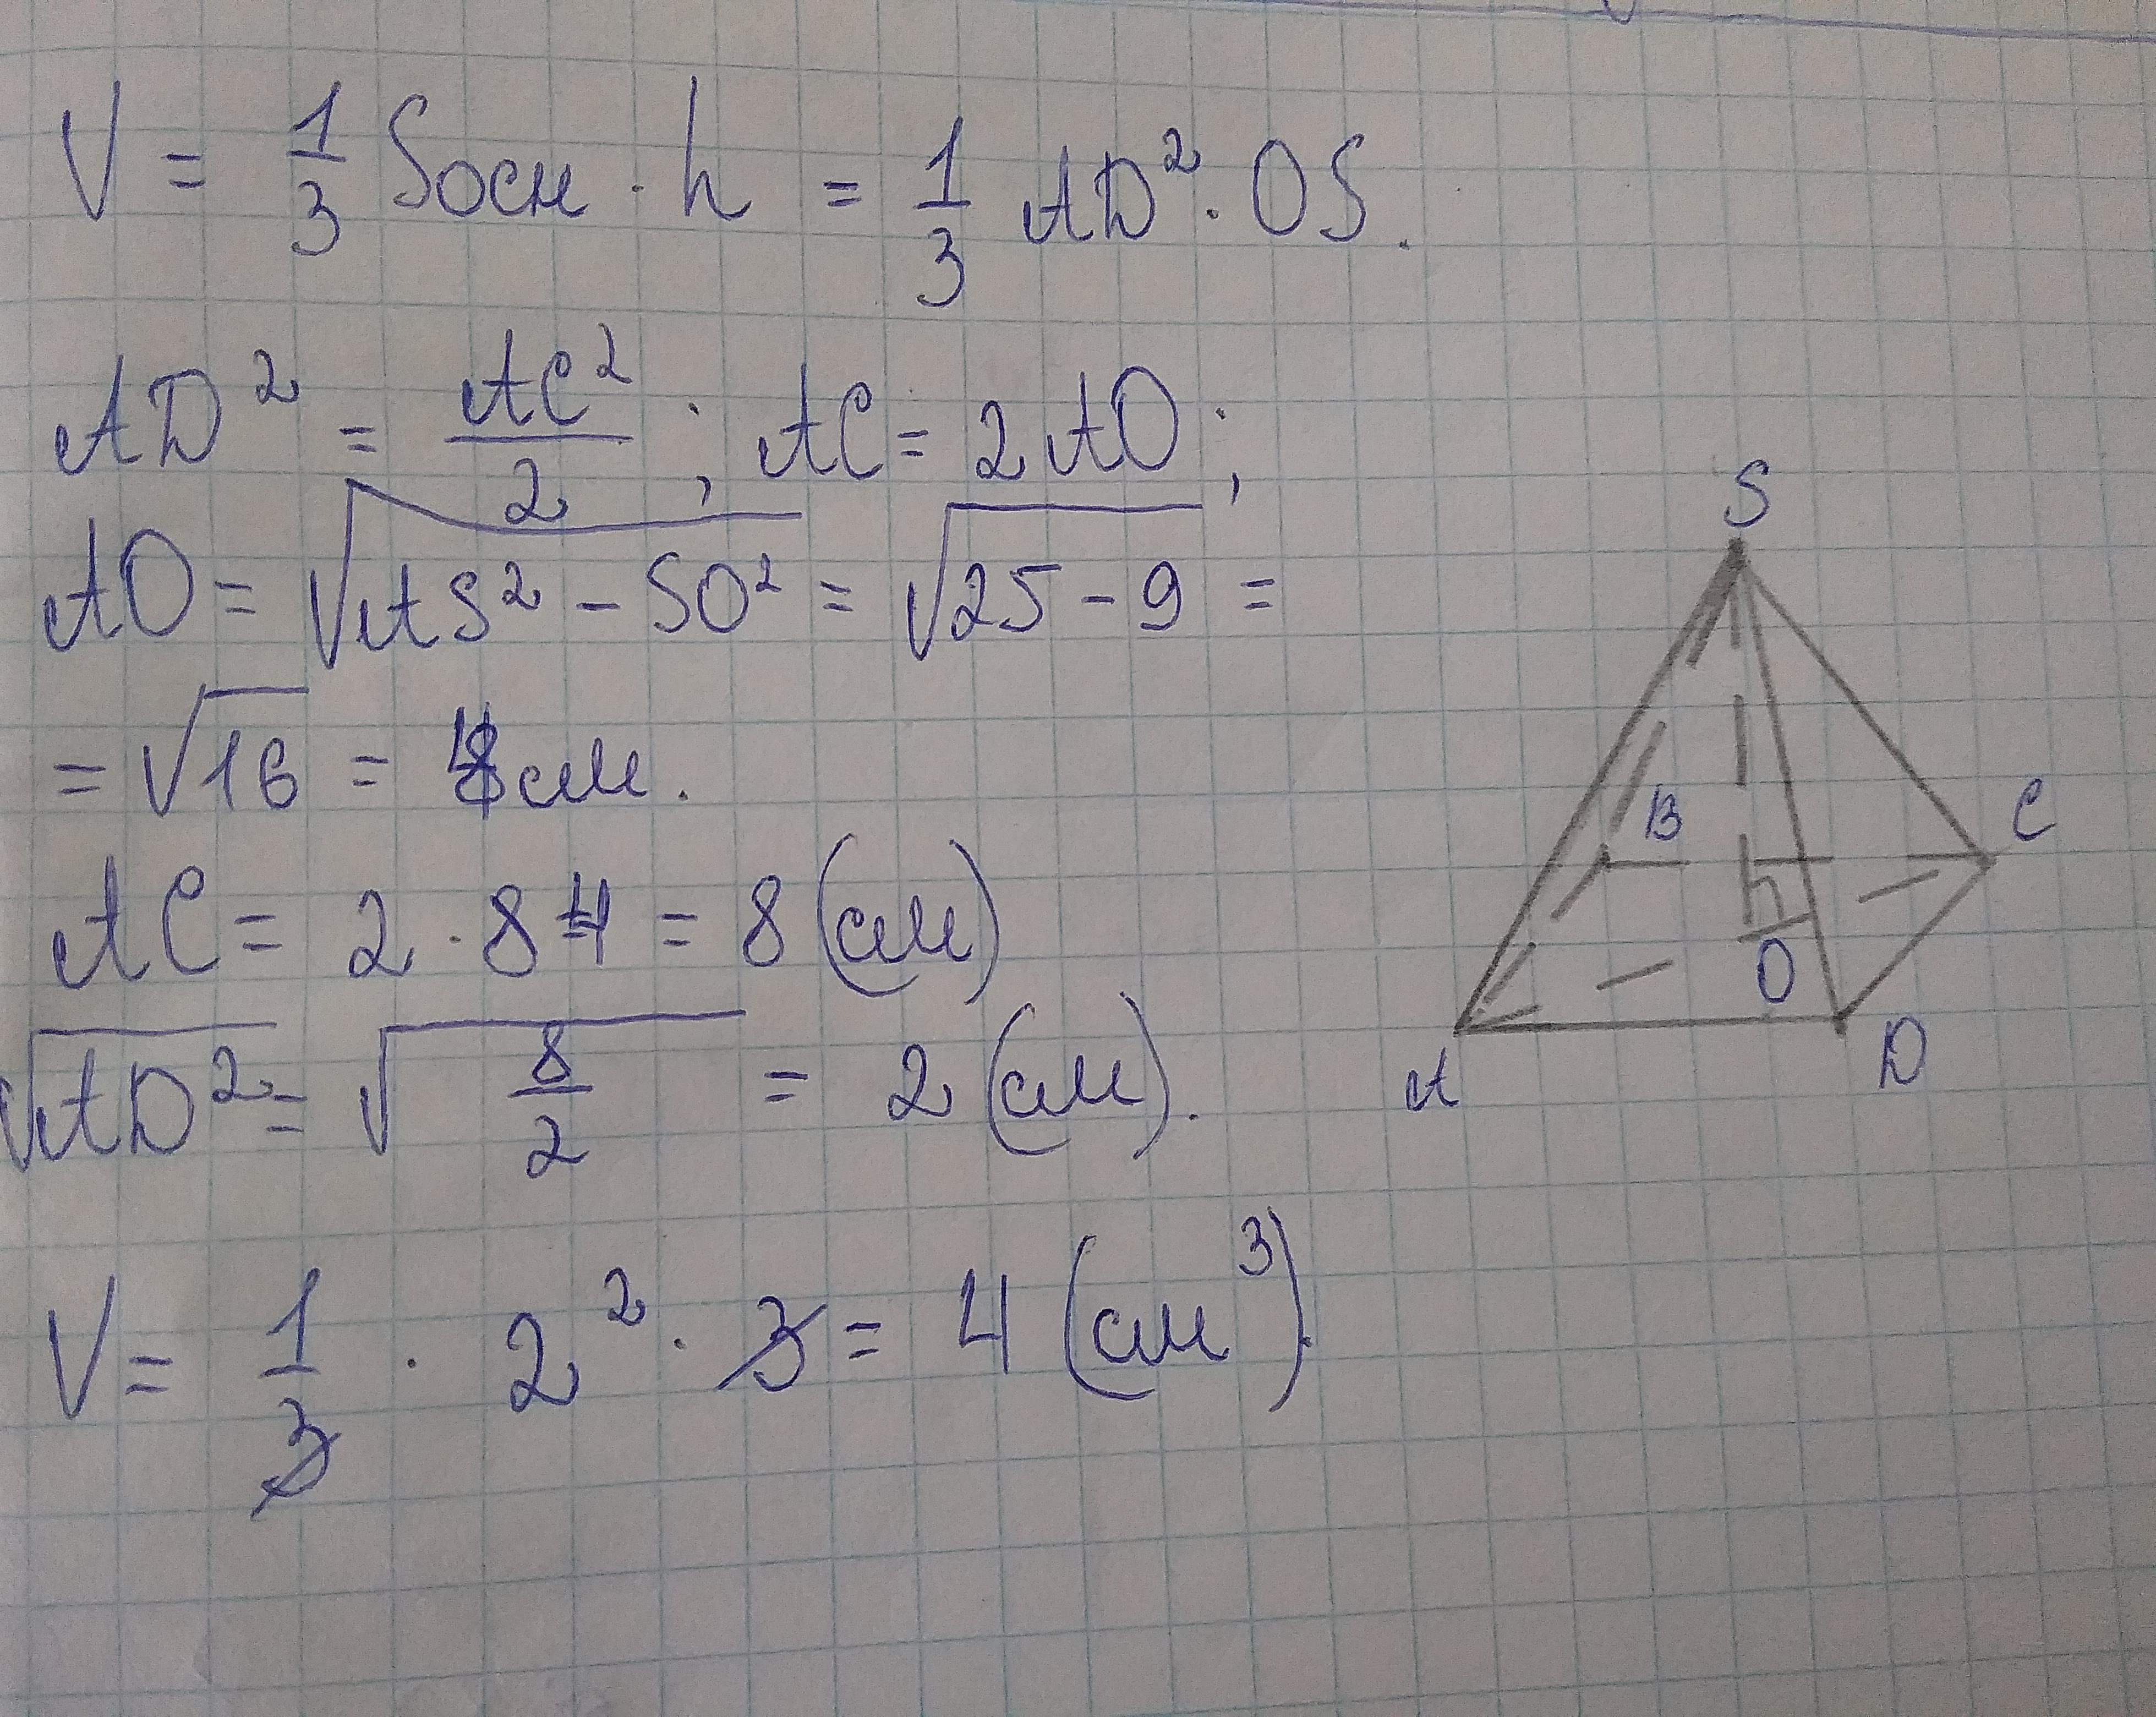 V = 1/3 Sосн · h = 1/3 AD² · OS.
AD² = AC²/2 ; AC = 2AO ;
AO = √(AS² - SO²) = √(25 - 9) =
= √16 = 4 см.
AC = 2 · 8 4 = 8 (см)
√AD² = √(8/2) = 2 (см).
V = 1/3 · 2² · 3 = 4 (см³).
S
B
C
O
A
D